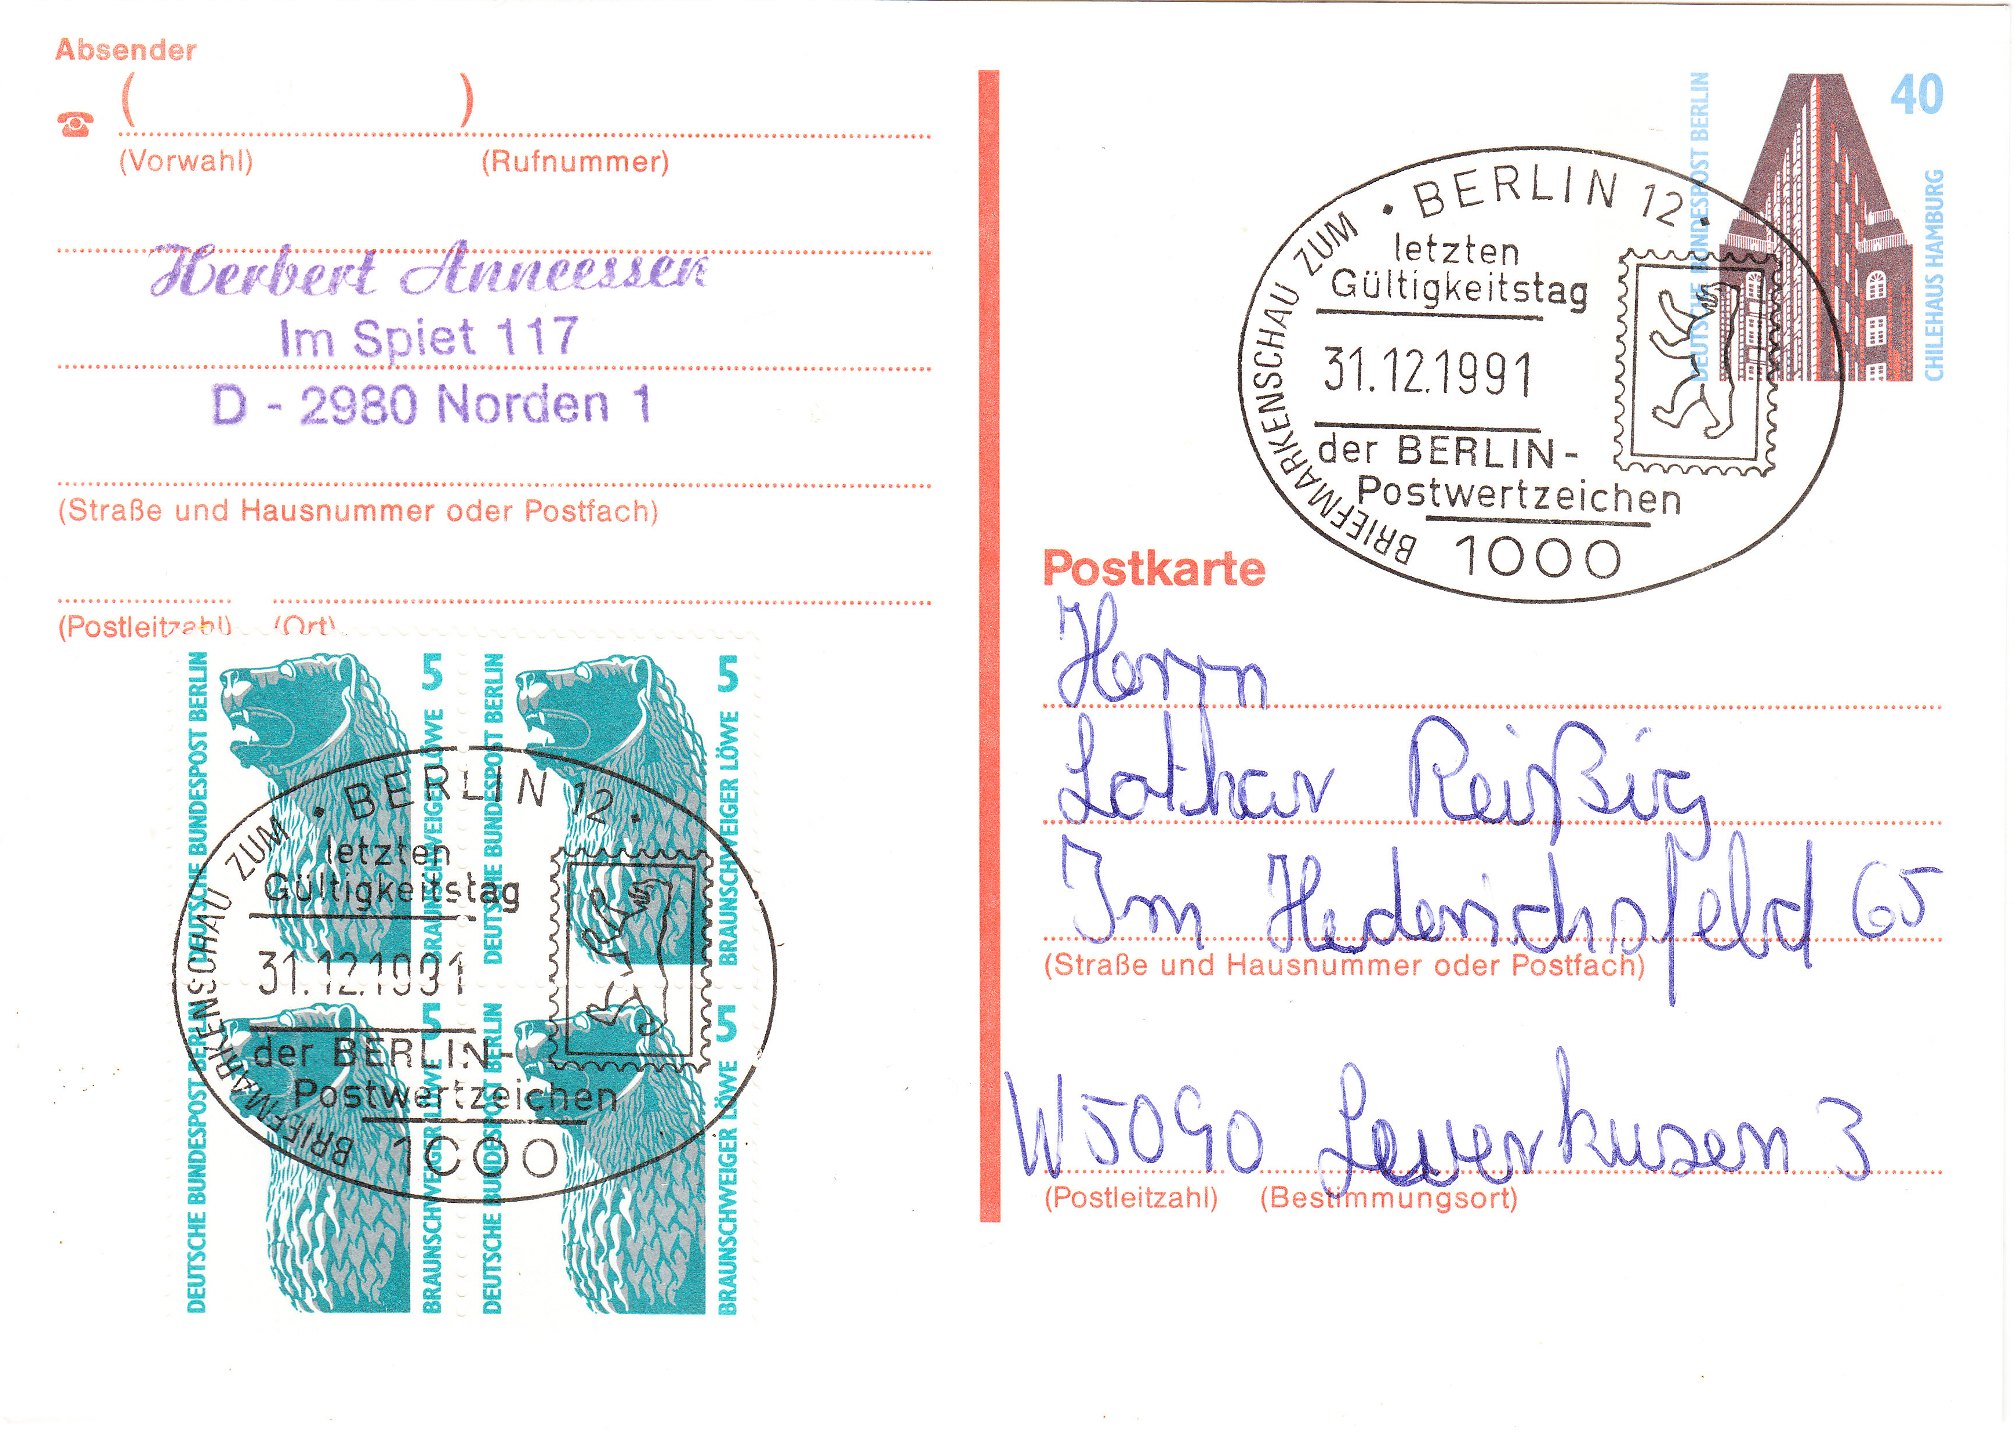 Absender
( )
(Vorwahl) (Rufnummer)
Herbert Anneessen
Im Spiet 117
D - 2980 Norden 1
(Straße und Hausnummer oder Postfach)
(Postleitzahl) (Ort)
DEUTSCHE BUNDESPOST BERLIN
5
BRAUNSCHWEIGER LÖWE
DEUTSCHE BUNDESPOST BERLIN
5
BRAUNSCHWEIGER LÖWE
DEUTSCHE BUNDESPOST BERLIN
5
BRAUNSCHWEIGER LÖWE
DEUTSCHE BUNDESPOST BERLIN
5
BRAUNSCHWEIGER LÖWE
BRIEFMARKENSCHAU ZUM · BERLIN 12 ·
letzten
Gültigkeitstag
31.12.1991
der BERLIN-
Postwertzeichen
1000
DEUTSCHE BUNDESPOST BERLIN
40
CHILEHAUS HAMBURG
BRIEFMARKENSCHAU ZUM · BERLIN 12 ·
letzten
Gültigkeitstag
31.12.1991
der BERLIN-
Postwertzeichen
1000
Postkarte
Herrn
Lothar Reißig
Im Hederichsfeld 65
(Straße und Hausnummer oder Postfach)
W5090 Leverkusen 3
(Postleitzahl) (Bestimmungsort)